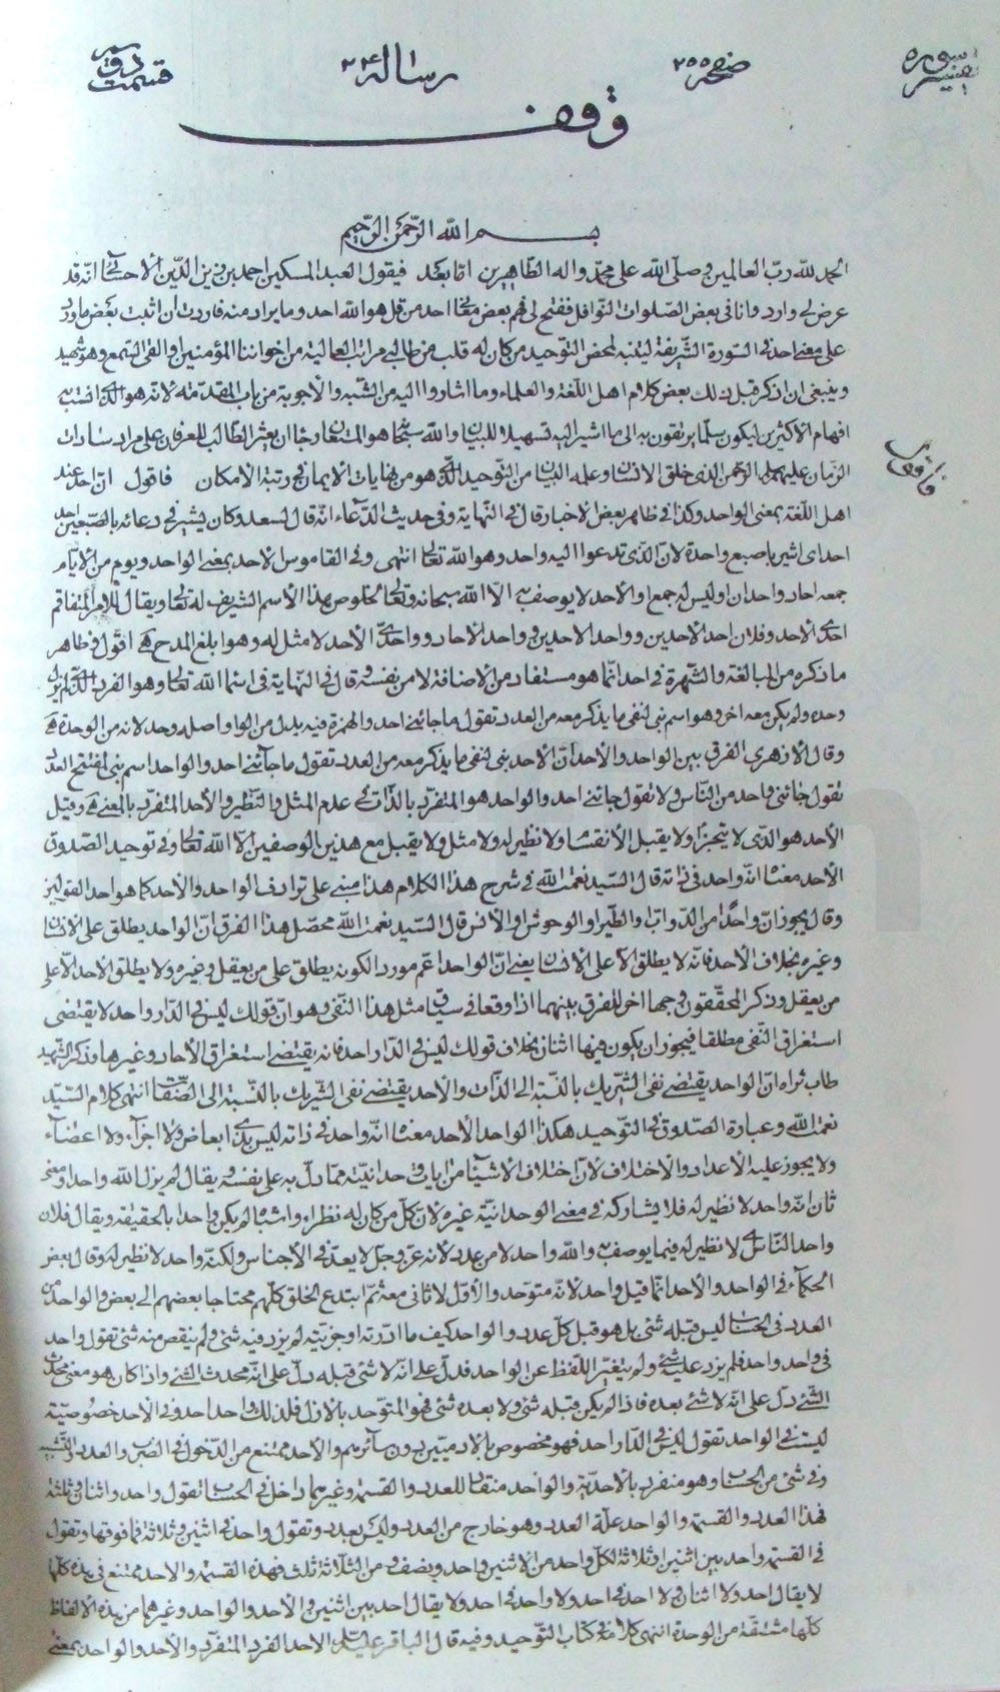 تفسير سوره
صفحه ٢٥٥
رساله ٢٤
قسمت دوم
وقف
بسم الله الرّحمن الرّحيم
الحمد لله ربّ العالمين و صلّى الله على محمّد واله الطّاهرين امّا بعد فيقول العبد المسكين احمد بن زين الدّين الاحسائى انّه قد
عرض لى وارد وانا فى بعض الصّلوات النّوافل ففتح لى فهم بعض معنى احد من قل هو الله احد وما يراد منه فاردت ان اثبت بعض ما ورد
على معنى احد فى السّورة الشّريفة ليتنبه لمحض التّوحيد من كان له قلب من طالبى مراتب العالية من اخواننا المؤمنين او القى السّمع وهو شهيد
وينبغى ان اذكر قبل ذلك بعض كلام اهل اللّغة والعلماء وما اشاروا اليه من الشّبه والاجوبة من باب المقدّمة لانّه هو الّذى انست به
افهام الاكثرين ليكون سلّما يرتقون به الى ما اشير اليه تسهيلا للبيان والله سبحانه هو المستعان رجا ان يعثر الطّالب للعرفان على مراد سادات
الزّمان عليهم سلام الرّحمن الذى خلق الانسان وعلمه البيان من التّوحيد الّذى هو من نهايات الايمان فى رتبة الامكان فاقول انّ احد عند
اهل اللّغة بمعنى الواحد وكذا فى ظاهر بعض الاخبار قال فى النّهاية وفى حديث الدّعاء انّه قال لسعد وكان يشير فى دعائه باصبعين احد
احد اى اشير باصبع واحدة لانّ الّذى تدعوا اليه واحد وهو الله تعالى انتهى وفى القاموس الاحد بمعنى الواحد ويوم من الايّام
جمعه احاد واحدان او ليس له جمع او الاحد لا يوصف به الاّ الله سبحانه وتعالى لخلوص هذا الاسم الشّريف له تعالى ويقال للامر المتفاقم
احدى الاحد وفلان احد الاحدين وواحد الاحدين وواحد الاحاد وواحدى الاحد لا مثل له وهو ابلغ المدح هى اقول وظاهر
ما ذكره من المبالغة والشّهرة فى احد انّما هو مستفاد من الاضافة لا من نفسه و قال فى النّهاية فى اسماء الله تعالى وهو الفرد الّذى لم يزل
وحده ولم يكن معه اخر وهو اسم بنى لنفى ما يذكر معه من العدد تقول ما جائنى احد والهمزة فيه بدل من الواو اصله وحد لانه من الوحدة هى
وقال الازهرى الفرق بين الواحد والاحد انّ الاحد بنى لنفى ما يذكر معه من العدد تقول ما جائنى احد والواحد اسم بنى لمفتتح العدد
تقول جائنى واحد من النّاس ولا تقول جائنى احد والواحد هو المنفرد بالذّات فى عدم المثل والنّظير والاحد المنفرد بالمعنى هى وقيل
الاحد هو الّذى لا يتجزّا ولا يقبل الانقسام ولا نظير له ولا مثل ولا يقبل مع هذين الوصفين الاّ الله تعالى وفى توحيد الصّدوق
الاحد معناه انّه واحد فى ذاته قال السّيد نعمت الله فى شرح هذا الكلام هذا مبنى على ترادف الواحد والاحد كما هو احد القولين
وقال يجوز انّ واحدًا من الدّواب او الطّير او الوحوش او الانس قال السّيد نعمت الله محصّل هذا الفرق انّ الواحد يطلق على الانسان
وغيره بخلاف الاحد فانّه لا يطلق الاّ على الانسان يعنى انّ الواحد اعمّ موردا لكونه يطلق على من يعقل وغيره ولا يطلق الاحد الاّ على
من يعقل وذكر المحقّقون وجها اخر للفرق بينهما اذا وقعا فى سياق مثل هذا النّفى وهو انّ قولك ليس فى الدّار واحد لا يقتضى
استغراق النّفى مطلقا فيجوز ان يكون فيها اثنان بخلاف قولك ليس فى الدّار احد فانّه يقتضى استغراق الاحاد وغيرها وذكر الشّهيد
طاب ثراه انّ الواحد يقتضى نفى الشّريك بالنّسبة الى الذّات والاحد يقتضى نفى الشّريك بالنّسبة الى الصّفات انتهى كلام السّيد
نعمت الله وعبارة الصّدوق فى التّوحيد هكذا الواحد الاحد معناه انّه واحد فى ذاته ليس بذى ابعاض ولا اجزآء ولا اعضآء
ولا يجوز عليه الاعداد والاختلاف لانّ اختلاف الاشيآء من ايات وحدانيّته ممّا دلّ به على نفسه ويقال لم يزل الله واحدا ومعنى
ثان انّه واحد لا نظير له فلا يشاركه فى معنى الوحدانيّة غيره لانّ كلّ من كان له نظراء واشباه لم يكن واحدا بالحقيقة ويقال فلان
واحد النّاس اى لا نظير له فيما يوصف به والله واحد لا من عدد لانّه عزّ وجلّ لا يعدّ فى الاجناس ولكنّه واحد لا نظير له وقال بعض
الحكمآء فى الواحد والاحد انّما قيل واحد لانّه متوحّد والاوّل لا ثانى معه ثمّ ابتدع الخلق كلّهم محتاجا بعضهم الى بعض والواحد من
العدد فى الحساب ليس قبله شئ بل هو قبل كلّ عدد والواحد كيف ما ادرته او جزيته لم يزد فيه شئ ولم ينقص منه شئ تقول واحد
فى واحد واحد فلم يزد عليه شئ ولم يتغيّر اللّفظ عن الواحد فدلّ على انّه لا شئ قبله دلّ على انّه محدث الشّئ واذا كان هو مغنى محدث
الشّئ دلّ على انّه لا شئ بعده فاذا لم يكن قبله شئ ولا بعده شئ فهو المتوحّد بالازل فلذلك واحد احد وفى الاحد خصوصيّة
ليست فى الواحد تقول ليس فى الدّار احد فهو مخصوص بالادميّين دون سائرهم والاحد ممتنع من الدّخول فى الضّرب والعدد والقسمة
وفى شئ من الحساب وهو منفرد بالاحديّة والواحد منقاد للعدد والقسمة وغيرهما داخل فى الحساب تقول واحد واثنان وثلثة
فهذا العدد والقسمة والواحد علّة العدد وهو خارج من العدد وليس بعدد وتقول واحد فى اثنين وثلاثة فما فوقها وتقول
فى القسمة واحد بين اثنين او ثلاثة لكلّ واحد من الاثنين واحد ونصف ومن الثّلاثة ثلث فهذه القسمة والاحد ممتنع فى هذه كلّها
لا يقال احد ولا اثنان ولا احد فى احد ولا واحد فى احد ولا يقال احد بين اثنين والاحد والواحد وغيرهما من هذه الالفاظ
كلّها مشتقّة من الوحدة انتهى كلامه فى كتاب التّوحيد وفيه قال الباقر عليه السّلام الاحد الفرد المتفرّد والاحد والواحد بمعنى